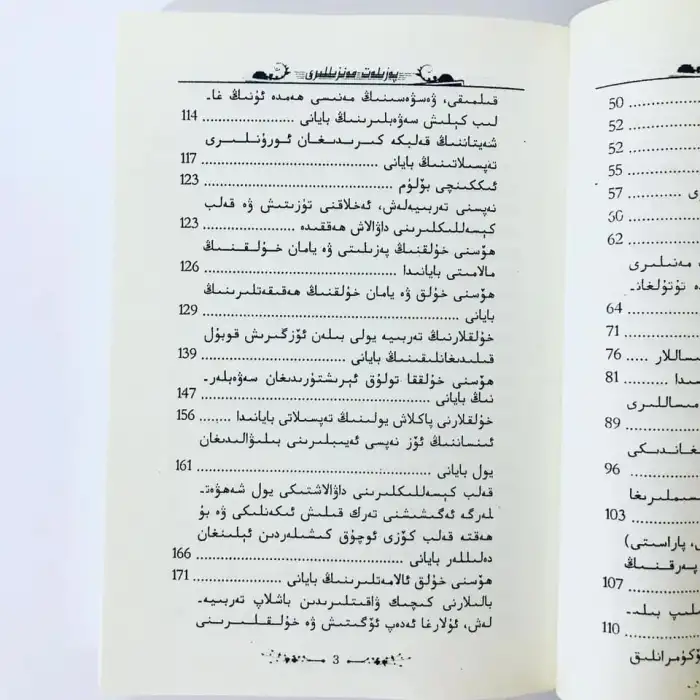 پەزىلەت مەنزىللىرى
قىلمىقى، ۋەسۋەسىنىڭ مەنىسى ھەمدە ئۇنىڭ غا-
لىب كېلىش سەۋەبلىرىنىڭ بايانى ........................ 114
شەيتاننىڭ قەلبكە كىرىدىغان ئورۇنلىرى
تەپسىلاتىنىڭ بايانى ........................ 117
ئىككىنچى بۆلۈم ........................ 123
نەپسنى تەربىيەلەش، ئەخلاقنى تۈزىتىش ۋە قەلب
كېسەللىكلىرىنى داۋالاش ھەققىدە ........................ 123
ھۆسنى خۇلقنىڭ پەزىلىتى ۋە يامان خۇلقنىڭ
مالامىتى بايانىدا ........................ 126
ھۆسنى خۇلق ۋە يامان خۇلقنىڭ ھەقىقەتلىرىنىڭ
بايانى ........................ 129
خۇلقلارنىڭ تەربىيە يولى بىلەن ئۆزگىرىش قوبۇل
قىلىدىغانلىقىنىڭ بايانى ........................ 139
ھۆسنى خۇلققا تولۇق ئېرىشتۈرىدىغان سەۋەبلەر-
نىڭ بايانى ........................ 147
خۇلقلارنى پاكلاش يولىنىڭ تەپسىلاتى بايانىدا ........ 156
ئىنساننىڭ ئۆز نەپسى ئەيىبلىرىنى بىلىۋالىدىغان
يول بايانى ........................ 161
قەلب كېسەللىكلىرىنى داۋالاشتىكى يول شەھۋەت-
لەرگە ئەگىشىشنى تەرك قىلىش ئىكەنلىكى ۋە بۇ
ھەقتە قەلب كۆزى ئوچۇق كىشىلەردىن ئېلىنغان
دەلىللەر بايانى ........................ 166
ھۆسنى خۇلق ئالامەتلىرىنىڭ بايانى ........................ 171
بالىلارنى كىچىك ۋاقىتلىرىدىن باشلاپ تەربىيە-
لەش، ئۇلارغا ئەدەپ ئۆگىتىش ۋە خۇلقلىرىنى
3
50
52
52
55
57
60
62
مەنىلىرى
تۇتۇلغان-
64
71
مىساللار ..... 76
81
مىساللىرى
89
96
103
، پاراسىتى)
پەرقىنىڭ
107
110